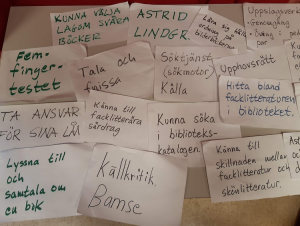 KUNNA VÄLJA
LAGOM SVÅRA
BÖCKER
ASTRID
LINDGR.
Lära sig
Uppslagsverk
Fem-
finger-
testet
Tala och
gissa
Söktjänst
(sökmotor)
Källa
Upphovsrätt
Hitta bland
facklitteraturen
i biblioteket.
TA ANSVAR
FÖR SINA LÅN
Känna till
facklitterära
särdrag
Kunna söka
i biblioteks-
katalogen.
Lyssna till
och
samtala om
en bok
Källkritik.
Bamse
Känna till
skillnaden mellan
facklitteratur och
skönlitteratur.